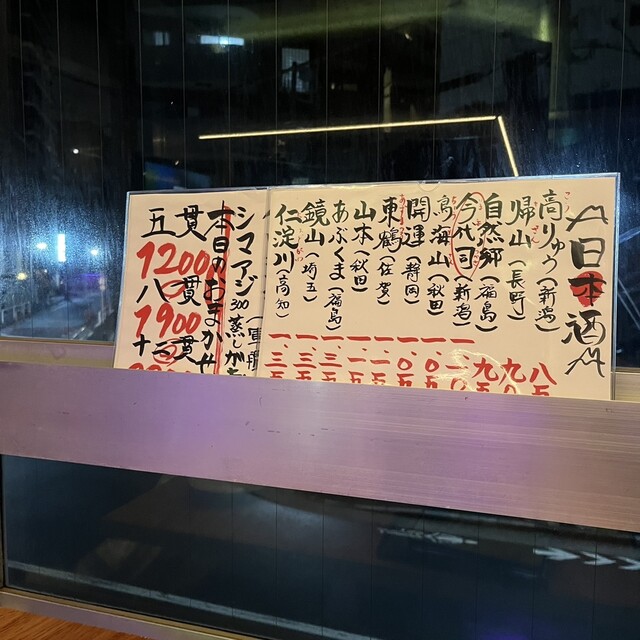 日本酒
高りゅう(新潟)八五
帰山(長野)九
自然郷(福島)九五
今代司(新潟)一、〇
鳥海山(秋田)一、〇五
開運(静岡)一、〇五
東鶴(佐賀)一、一
山本(秋田)一、一五
あぶくま(福島)一、三
鏡山(埼玉)一、三五
仁淀川(高知)一、三五
シマアジ300
蒸し
本日のおまかせ
五貫
1200
八貫
1900
十二貫